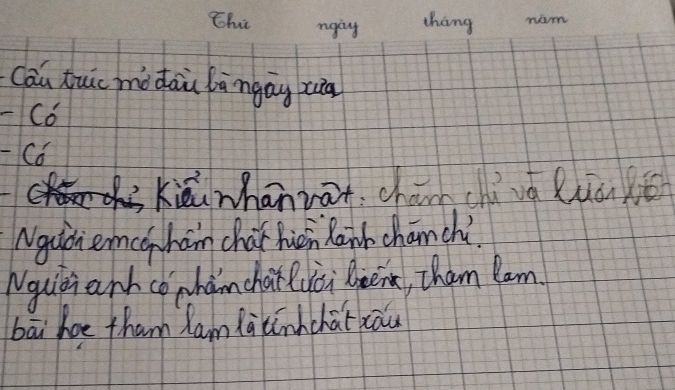 Thứ ngày tháng năm
- Cấu trúc mở đầu là ngày xưa
- Có
- Có
- Kiểu nhân vật: chăm chỉ và lười
- Người em có phẩm chất hiền lành chăm chỉ.
Người anh có phẩm chất lười tham lam.
bài học tham lam là tính chất xấu